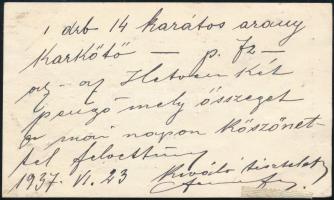 1 drb 14 karátos arany
Karkötő — p. 72 —
az Hetven Két
pengő mely összeget
a mai napon Köszönet-
tel felvettem
1937. VI. 23 Kiváló tisztelettel